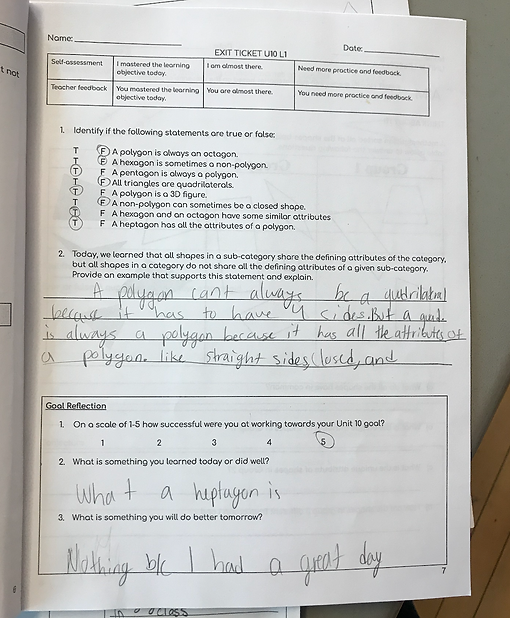 t not
Name:
Date:
EXIT TICKET U10 L1
Self-assessment I mastered the learning objective today. I am almost there. Need more practice and feedback.
Teacher feedback You mastered the learning objective today. You are almost there. You need more practice and feedback.
1. Identify if the following statements are true or false:
T F A polygon is always an octagon.
T F A hexagon is sometimes a non-polygon.
T F A pentagon is always a polygon.
T F All triangles are quadrilaterals.
T F A polygon is a 3D figure.
T F A non-polygon can sometimes be a closed shape.
T F A hexagon and an octagon have some similar attributes
T F A heptagon has all the attributes of a polygon.
2. Today, we learned that all shapes in a sub-category share the defining attributes of the category,
but all shapes in a category do not share all the defining attributes of a given sub-category.
Provide an example that supports this statement and explain.
A polygon cant always be a quadrilateral
because it has to have 4 sides. But a quad.
is always a polygon because it has all the attributes of
a polygon. like straight sides, closed, and
Goal Reflection
1. On a scale of 1-5 how successful were you at working towards your Unit 10 goal?
1 2 3 4 5
2. What is something you learned today or did well?
What a heptagon is
3. What is something you will do better tomorrow?
Nothing b/c I had a great day
7